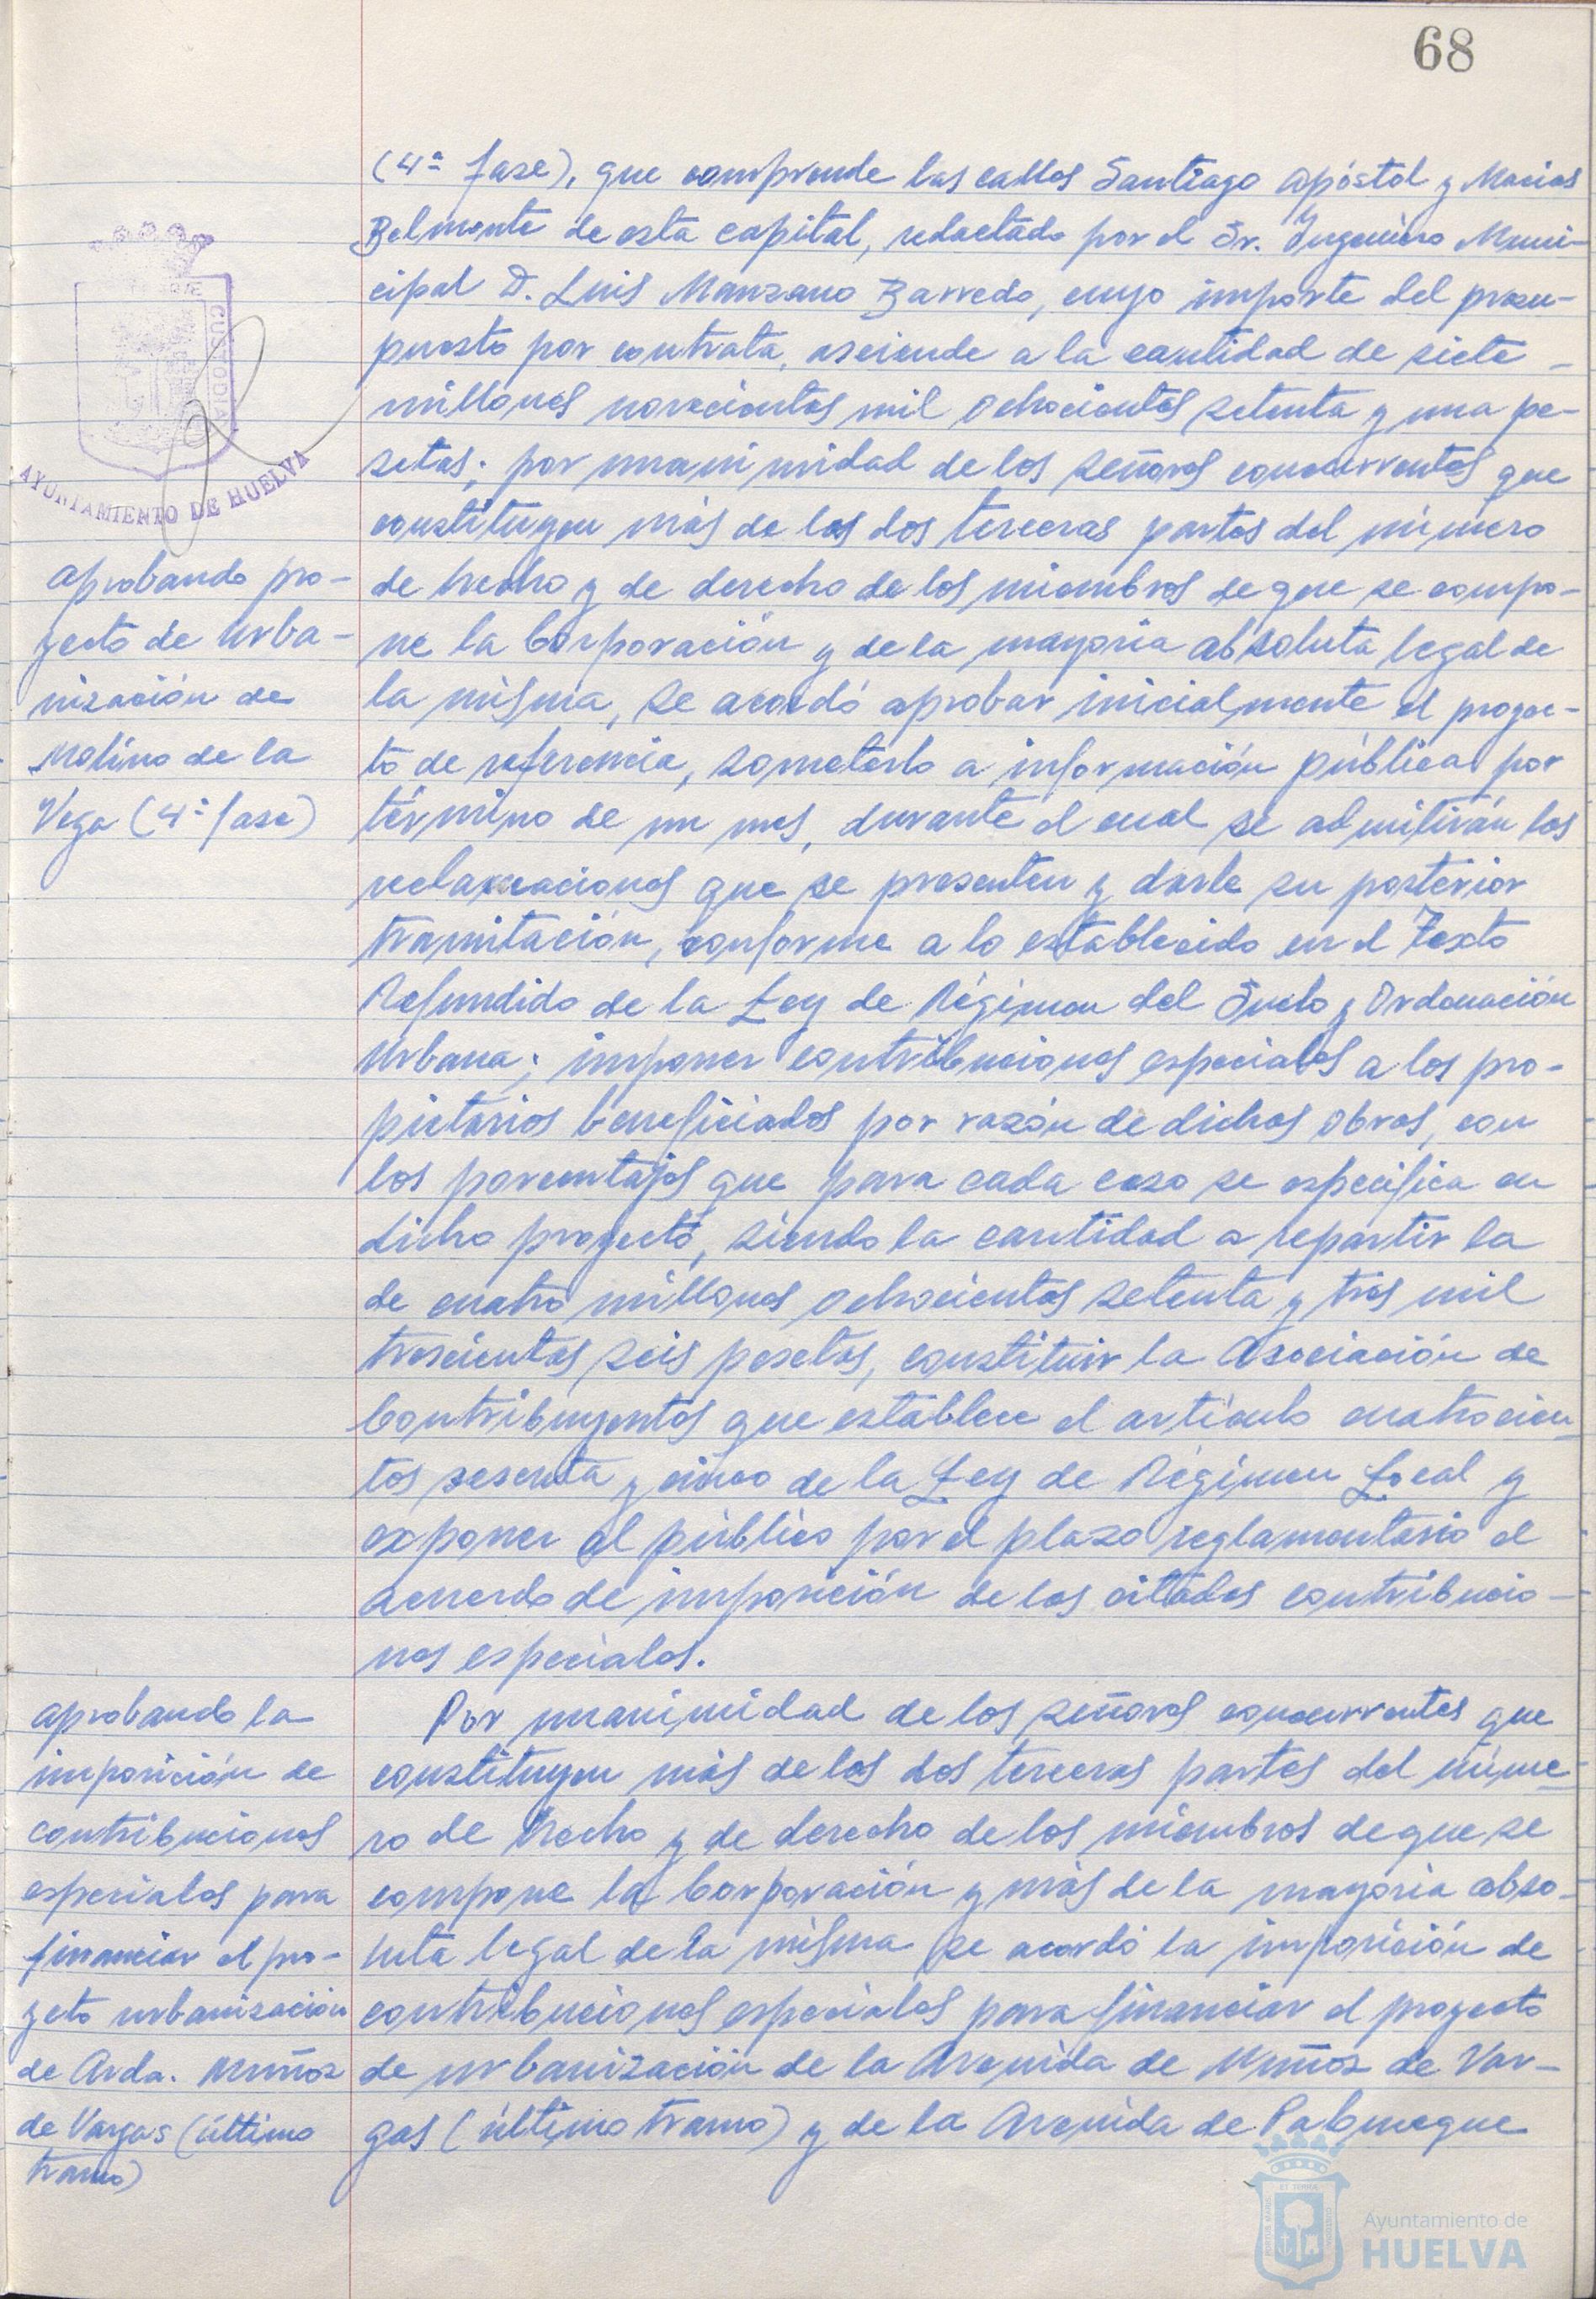 68
(4ª fase), que comprende las calles Santiago Apóstol y Macias
Belmonte de esta capital, redactado por el Sr. Ingeniero Muni-
cipal D. Luis Manzano Barredo, cuyo importe del presu-
puesto por contrata, asciende a la cantidad de siete
millones novecientas mil ochocientas setenta y una pe-
setas; por unanimidad de los señores concurrentes que
constituyen más de las dos terceras partes del número
de hecho y de derecho de los miembros de que se compo-
ne la Corporación y de la mayoria absoluta legal de
la misma, se acordó aprobar inicialmente el proyec-
to de referencia, someterlo a información pública por
término de un mes, durante el cual se admitirán las
reclamaciones que se presenten y darle su posterior
tramitación, conforme a lo establecido en el Texto
Refundido de la Ley de Régimen del Suelo y Ordenación
Urbana; imponer contribuciones especiales a los pro-
pietarios beneficiados por razón de dichas obras, con
los porcentajes que para cada caso se especifica en
dicho proyecto, siendo la cantidad a repartir la
de cuatro millones ochocientas setenta y tres mil
trescientas seis pesetas, constituir la Asociación de
Contribuyentes que establece el artículo cuatrocien-
tos sesenta y cinco de la Ley de Régimen Local y
exponer al público por el plazo reglamentario el
acuerdo de imposición de las citadas contribucio-
nes especiales.
Por unanimidad de los señores concurrentes que
constituyen más de las dos terceras partes del núme-
ro de hecho y de derecho de los miembros de que se
compone la Corporación y más de la mayoria abso-
luta legal de la misma se acordó la imposición de
contribuciones especiales para financiar el proyecto
de urbanización de la Avenida de Muñoz de Var-
gas (último tramo) y de la Avenida de Palomeque
CUSTODIA
AYUNTAMIENTO DE HUELVA
aprobando pro-
yecto de urba-
nización de
Molino de la
Vega (4ª fase)
aprobando la
imposición de
contribuciones
especiales para
financiar el pro-
yeto urbanización
de Avda. Muñoz
de Vargas (último
tramo)
Ayuntamiento de
HUELVA